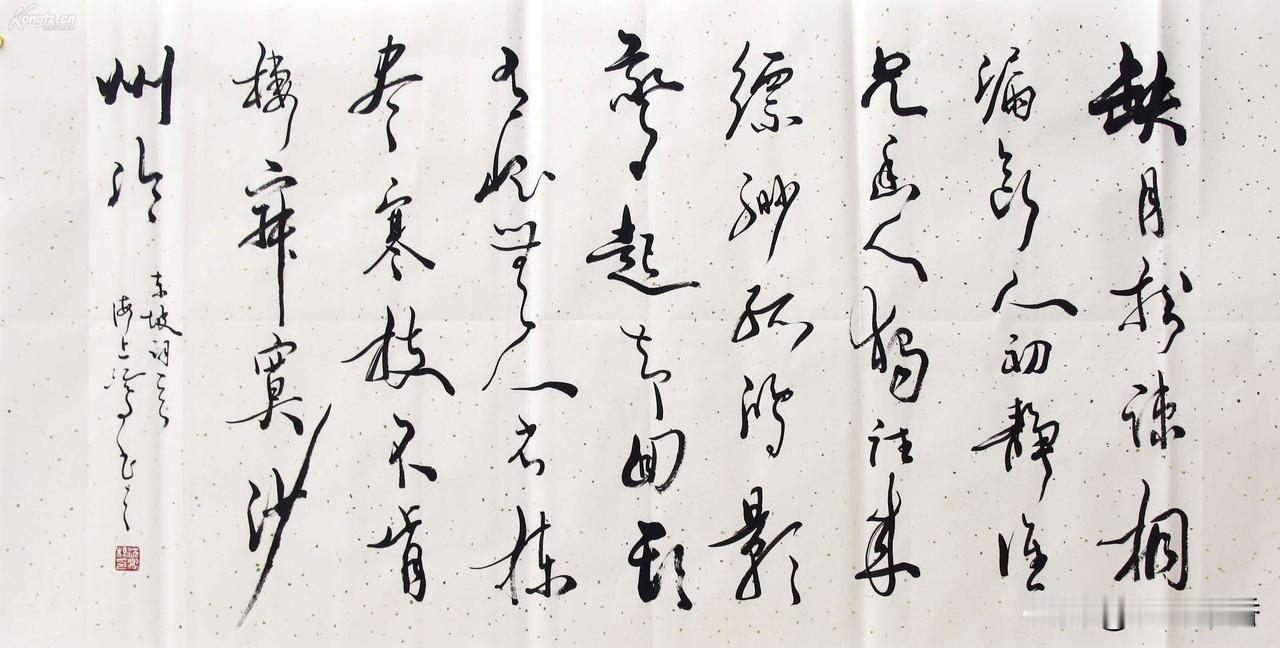 Kongfz.cn
缺月挂疎桐
漏断人初静谁
见幽人独往来
缥缈孤鸿影
惊起却回头
有恨无人省拣
尽寒枝不肯
棲寂寞沙
州冷
东坡词一首
海上